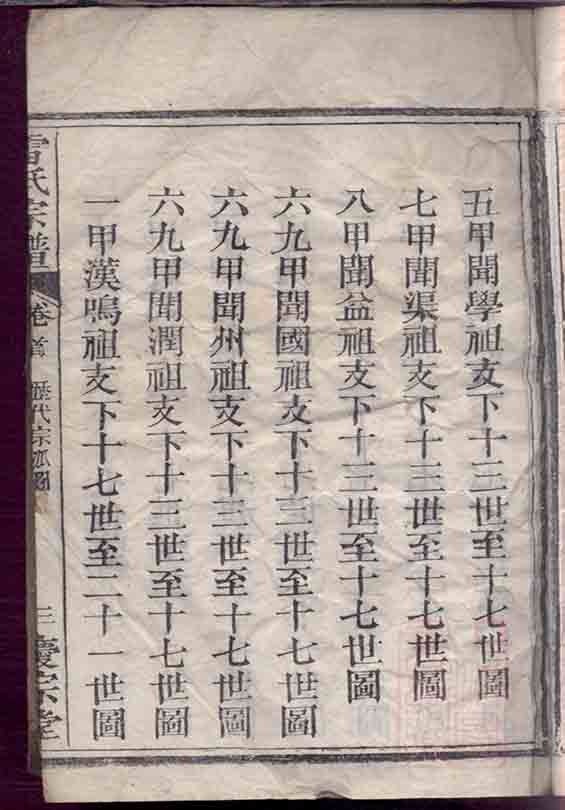 五甲聞學祖支下十三世至十七世圖
七甲聞渠祖支下十三世至十七世圖
八甲聞益祖支下十三世至十七世圖
六九甲聞國祖支下十三世至十七世圖
六九甲聞州祖支下十三世至十七世圖
六九甲聞潤祖支下十三世至十七世圖
一甲漢鳴祖支下十七世至二十一世圖
雷氏宗譜
卷首 歷代宗派圖 三 慶宗堂